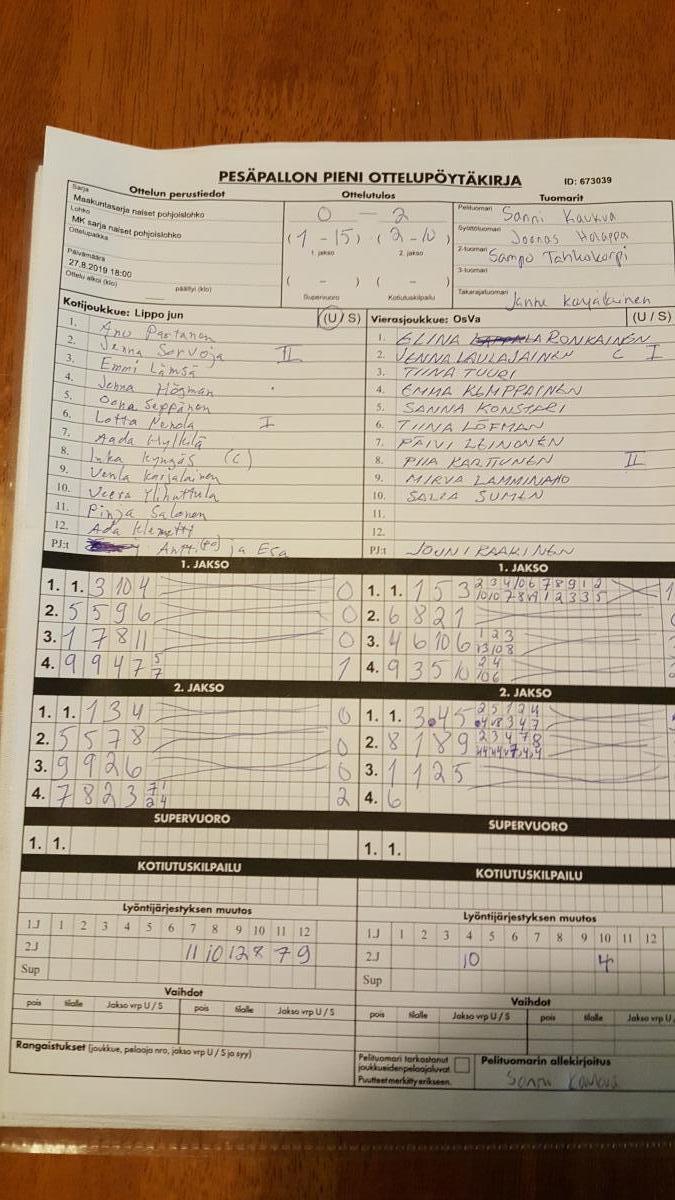 PESÄPALLON PIENI OTTELUPÖYTÄKIRJA ID: 673039
Ottelun perustiedot
Sarja
Maakuntasarja naiset pohjoislohko
Lohko
MK sarja naiset pohjoislohko
Ottelupaikka
Päivämäärä
27.8.2019 18:00
Ottelu alkoi (klo) päättyi (klo)
Ottelutulos
0 — 2
(1 - 15) (2 - 10)
1. jakso 2. jakso
( - ) ( - )
Supervuoro Kotiutuskilpailu
Tuomarit
Pelituomari Sanni Kaukua
Syöttötuomari Joonas Holappa
2-tuomari Sampo Tahkokorpi
3-tuomari
Takarajatuomari Janne Karjalainen
Kotijoukkue: Lippo jun (U / S)
1. Anu Partanen
2. Jenna Servoja II
3. Emmi Lämsä
4. Jenna Högman
5. Oona Seppänen
6. Lotta Nenola I
7. Aada Hylkilä
8. Inka Kyngäs (C)
9. Venla Karjalainen
10. Veera Ylihuttula
11. Pinja Salonen
12. Ada Klemetti
PJ:t Antti (po) ja Esa
Vierasjoukkue: OsVa (U / S)
1. ELINA RONKAINEN
2. JENNA LAULAJAINEN C I
3. TIINA TUURI
4. EMMA KEMPPAINEN
5. SANNA KONSTARI
6. TIINA LÖFMAN
7. PÄIVI LEINONEN
8. PIIA KARTTUNEN II
9. MIRVA LAMMINAHO
10. SALLA SUMEN
11.
12.
PJ:t JOUNI KAAKINEN
1. JAKSO
1. 1. 3 10 4 0
2. 5 5 9 6 0
3. 1 7 8 11 0
4. 9 9 4 7 5 7 1
1. JAKSO
1. 1. 1 5 3
2. 6 8 2 1
3. 4 6 10 6 1 2 3
4. 9 3 5 10 2 4
10 6
2. JAKSO
1. 1. 1 3 4 0
2. 5 5 7 8 0
3. 9 9 2 6 0
4. 7 8 2 3 7 1 2
2 4
2. JAKSO
1. 1. 3 4 5 2 5 1 2 4
2. 8 1 8 9 2 3 4 7 8
3. 1 1 2 5
4. 6
SUPERVUORO
1. 1.
SUPERVUORO
1. 1.
KOTIUTUSKILPAILU
KOTIUTUSKILPAILU
Lyöntijärjestyksen muutos
1.J 1 2 3 4 5 6 7 8 9 10 11 12
2.J 11 10 12 8 7 9
Sup
Lyöntijärjestyksen muutos
1.J 1 2 3 4 5 6 7 8 9 10 11 12
2.J 10 4
Sup
Vaihdot
pois tilalle Jakso vrp U / S pois tilalle Jakso vrp U / S
Vaihdot
pois tilalle Jakso vrp U / S pois tilalle Jakso vrp U
Rangaistukset (joukkue, pelaaja nro, jakso vrp U / S ja syy)
Pelituomari tarkastanut
joukkueiden pelaajaluvat.
Puutteet merkitty erikseen.
Pelituomarin allekirjoitus
Sanni Kaukua